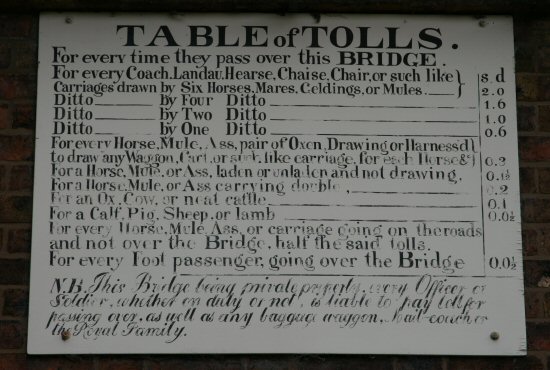 TABLE of TOLLS.
For every time they pass over this BRIDGE.
For every Coach, Landau, Hearse, Chaise, Chair, or such like s. d
Carriages drawn by Six Horses, Mares, Geldings, or Mules. 2.0
Ditto by Four Ditto 1.6
Ditto by Two Ditto 1.0
Ditto by One Ditto 0.6
For every Horse, Mule, Ass, pair of Oxen, Drawing or Harness'd
to draw any Waggon, Cart, or such like carriage, for each Horse &c 0.3
For a Horse, Mule, or Ass, laden or unladen and not drawing. 0.1½
For a Horse, Mule, or Ass carrying double, .2
For an Ox, Cow, or neat cattle 0.1
For a Calf, Pig, Sheep, or lamb 0.0½
For every Horse, Mule, Ass, or carriage going on the roads
and not over the Bridge, half the said tolls.
For every Foot passenger, going over the Bridge 0.0½
N.B. This Bridge being private property, every Officer or
Soldier, whether on duty or not, is liable to pay toll for
passing over, as well as any baggage waggon, Mail-coach or
the Royal Family.